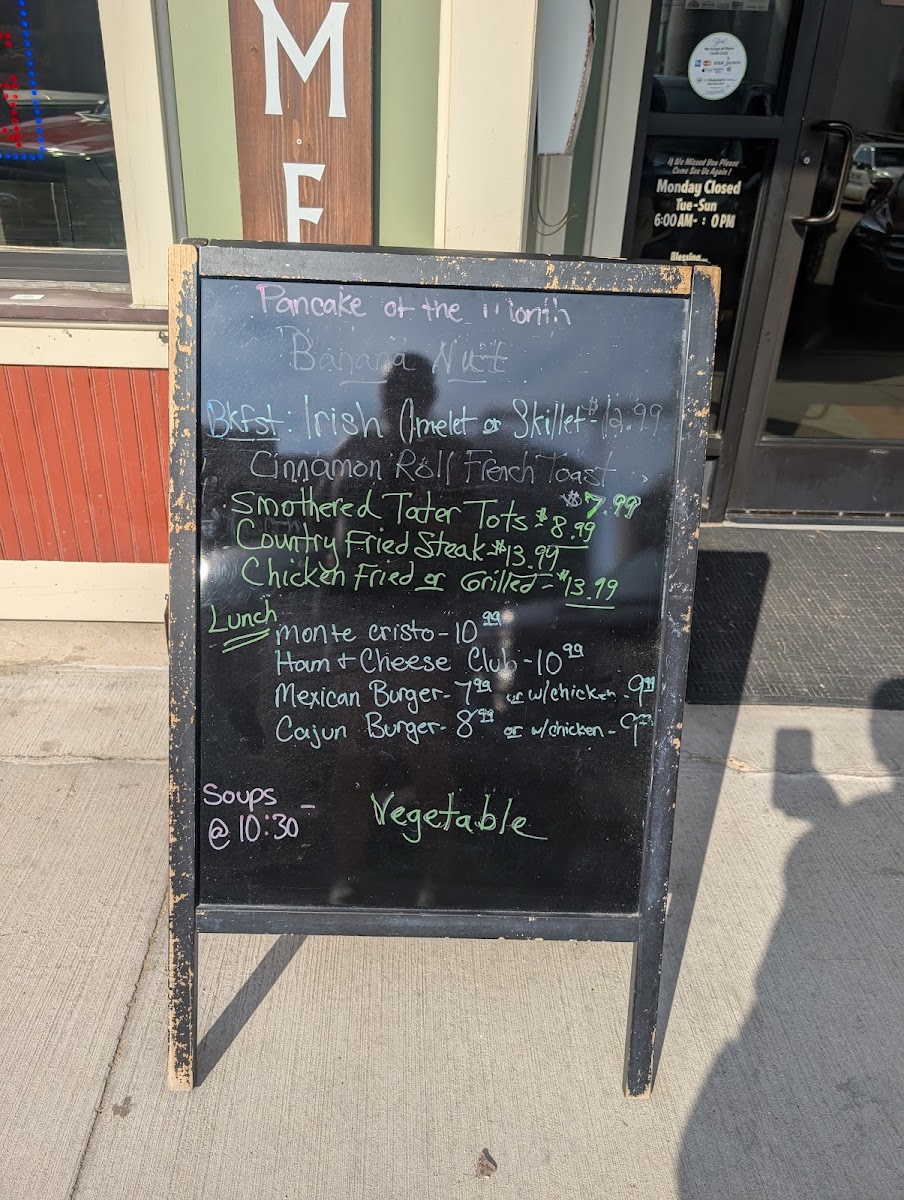 M
E
We accept all major
Credit Cards
VISA
If We Missed You Please
Come See Us Again!
Monday Closed
Tue-Sun
6:00 AM- : 0 PM
Blessing
Pancake of the Month
Banana Nut
Bkfst: Irish Omelet or Skillet - $12.99
Cinnamon Roll French Toast
$7.99
Smothered Tater Tots - $8.99
Country Fried Steak - $13.99
Chicken Fried or Grilled - $13.99
Lunch
Monte Cristo - 10 99
Ham + Cheese Club - 10 99
Mexican Burger - 7 99 or w/chicken - 9 99
Cajun Burger - 8 99 or w/chicken - 9 99
Soups -
@ 10:30
Vegetable